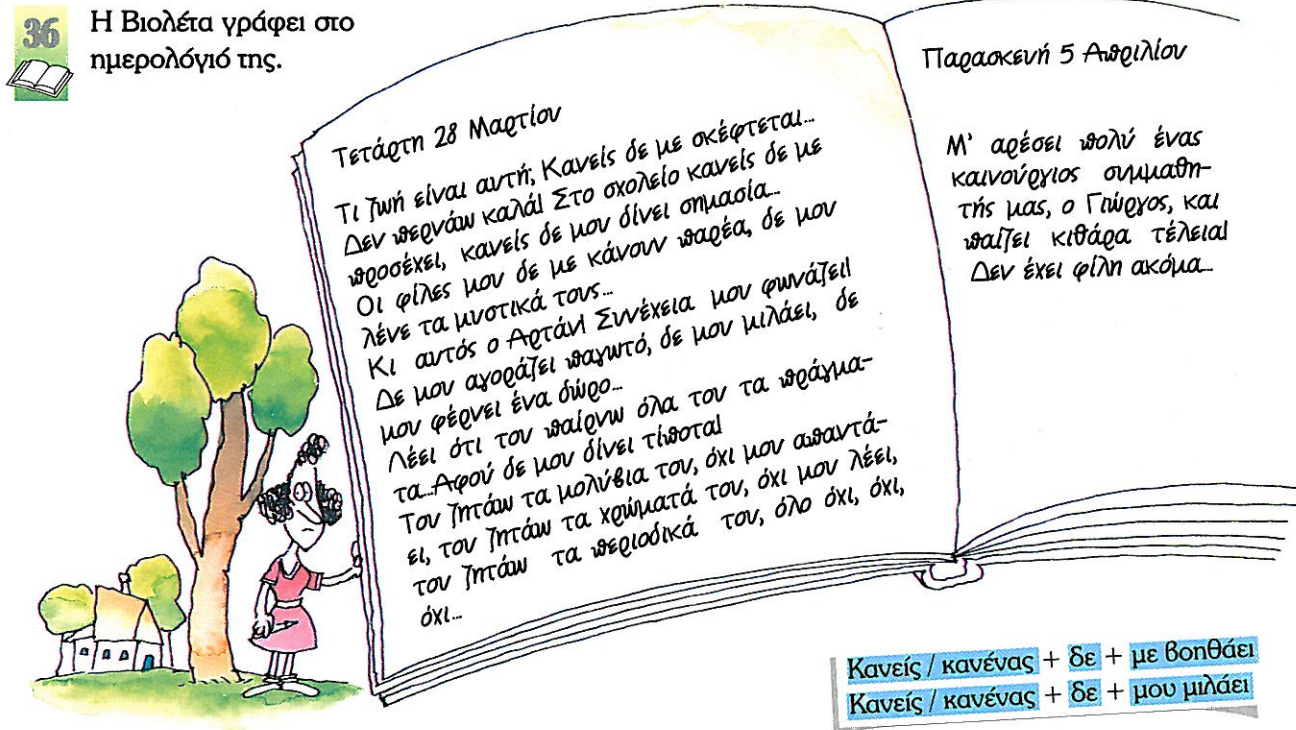 36
Η Βιολέτα γράφει στο
ημερολόγιό της.
Τετάρτη 28 Μαρτίου
Τι ζωή είναι αυτή; Κανείς δε με σκέφτεται...
Δεν περνάω καλά! Στο σχολείο κανείς δε με
προσέχει, κανείς δε μου δίνει σημασία...
Οι φίλες μου δε με κάνουν παρέα, δε μου
λένε τα μυστικά τους...
Κι αυτός ο Αρτάν! Συνέχεια μου φωνάζει!
Δε μου αγοράζει παγωτό, δε μου μιλάει, δε
μου φέρνει ένα δώρο...
Λέει ότι του παίρνω όλα του τα πράγμα-
τα...Αφού δε μου δίνει τίποτα!
Του ζητάω τα μολύβια του, όχι μου απαντά-
ει, του ζητάω τα χρώματά του, όχι μου λέει,
του ζητάω τα περιοδικά του, όλο όχι, όχι,
όχι...
Παρασκευή 5 Απριλίου
Μ' αρέσει πολύ ένας
καινούργιος συμμαθη-
τής μας, ο Γιώργος, και
παίζει κιθάρα τέλεια!
Δεν έχει φίλη ακόμα...
Κανείς / κανένας + δε + με βοηθάει
Κανείς / κανένας + δε + μου μιλάει